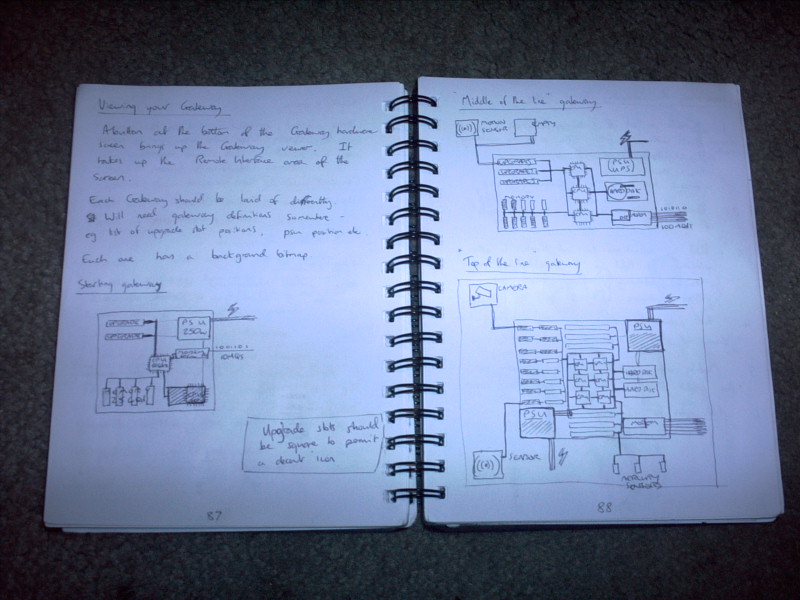 Viewing your Gateway
A button at the bottom of the Gateway hardware
screen brings up the Gateway viewer. It
takes up the Remote Interface area of the
screen.
Each Gateway should be laid out differently.
Will need gateway definitions somewhere -
eg list of upgrade slot positions, psu position etc.
Each one has a background bitmap.
Starting gateway
UPGRADE
UPGRADE
PSU
250W
CPU
10 MQ/s
Upgrade slots should
be square to permit
a decent icon
87
"Middle of the line" gateway
MOTION
SENSOR
EMPTY
PSU
UPS
MEMORY
HARD DISK
100 MQ/s
"Top of the line" gateway
CAMERA
PSU
HARD DISK
HARD DISK
PSU
MODEM
SENSOR
SENSORS
88